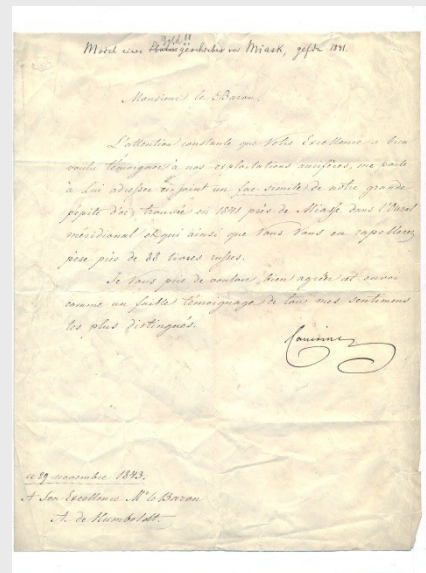 Modell eines Goldgeschiebes von Miask, gefdn 18
Monsieur le Baron,
L'attention constante que Votre Excellence a bien
voulu témoigner à nos exploitations aurifères, me porte
à Lui adresser ci-joint un fac simile de notre grande
pépite d'or, trouvée en près de Miasse dans l'Oural
méridional et qui ainsi que Vous Vous en rapellerez,
pèse près de 88 livres russes.
Je Vous prie de vouloir bien agréer cet envoi
comme un faible témoignage de tous mes sentimens
les plus distingués.
ce 29 novembre 1843.
A Son Excellence Mr le Baron
A. de Humboldt.